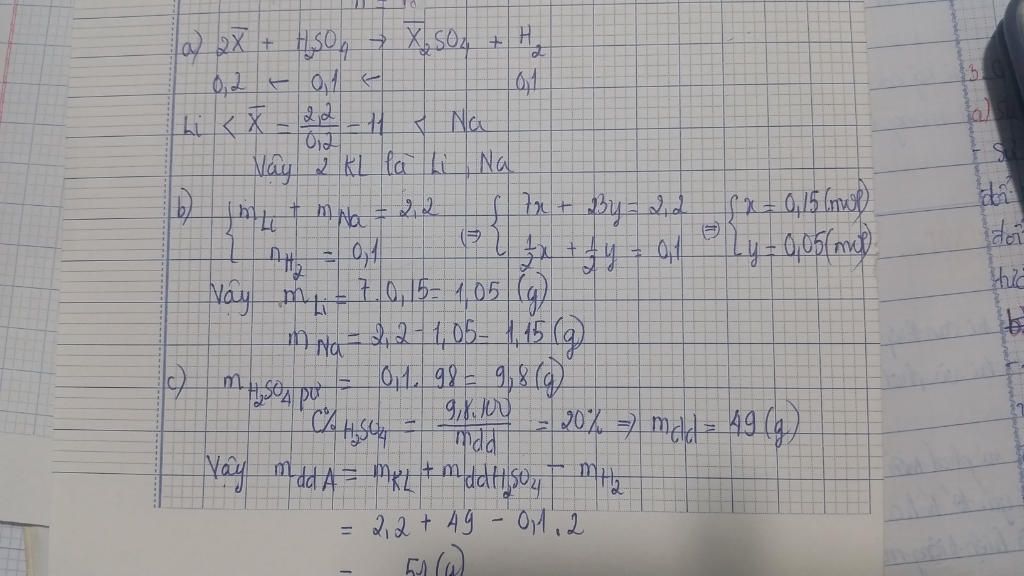 a) 2X̅ + H₂SO₄ → X̅₂SO₄ + H₂
0,2 ← 0,1 ← 0,1
Li < X̅ = 2,2/0,2 = 11 < Na
Vậy 2 KL là Li, Na
b) { m_Li + m_Na = 2,2 ⇔ { 7x + 23y = 2,2 ⇔ { x = 0,15 (mol)
n_H₂ = 0,1 1/2x + 1/2y = 0,1 y = 0,05 (mol)
Vậy m_Li = 7.0,15 = 1,05 (g)
m_Na = 2,2 - 1,05 = 1,15 (g)
c) m_H₂SO₄ pư = 0,1. 98 = 9,8 (g)
C%_H₂SO₄ = 9,8.100/mdd = 20% ⇒ mdd = 49 (g)
Vậy m_dd A = m_KL + m_dd H₂SO₄ - m_H₂
= 2,2 + 49 - 0,1.2
= 51 (g)
a)